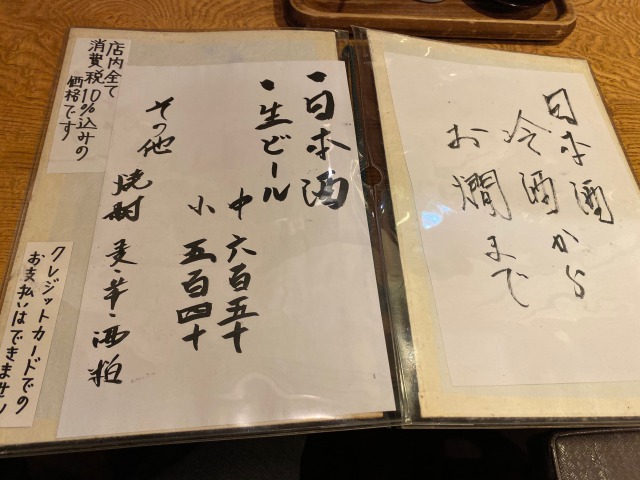 日本酒
冷酒から
お燗まで
一日本酒
一生ビール
中 六百五十
小 五百四十
その他 焼酎 麦・芋・酒粕
店内全て
消費税10%込みの
価格です
クレジットカードでの
お支払いはできません